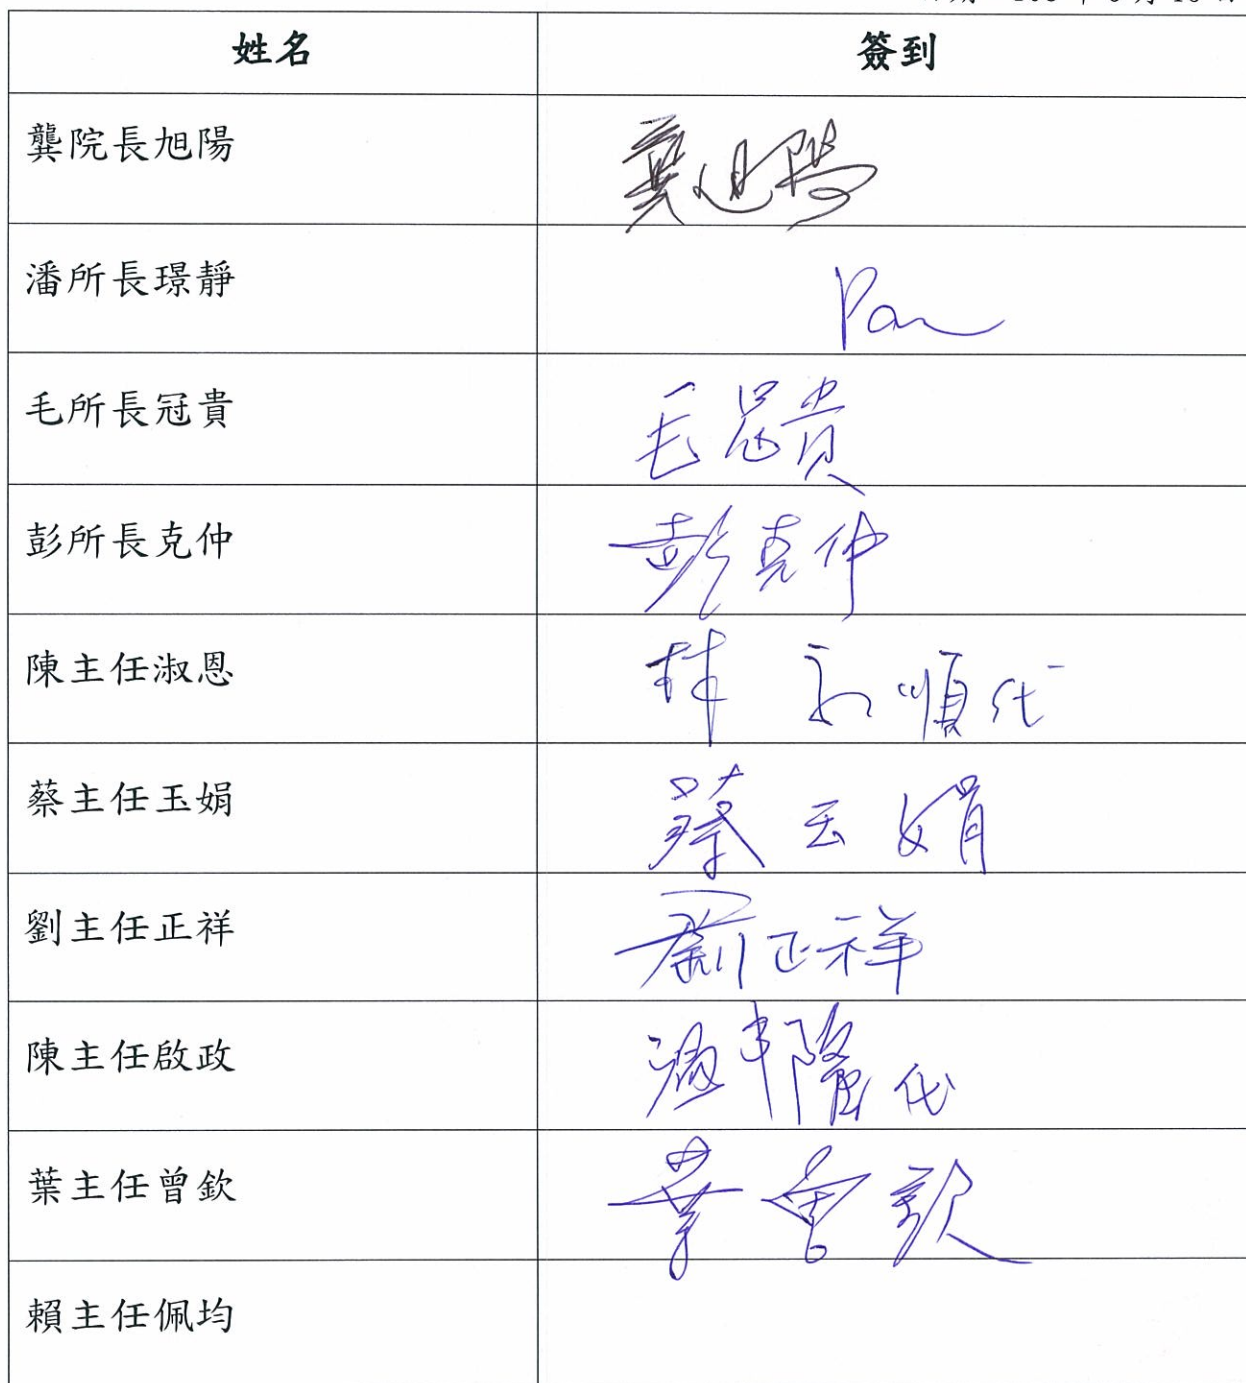 姓名 簽到
龔院長旭陽 龔旭陽
潘所長璟靜 Pan
毛所長冠貴 毛冠貴
彭所長克仲 彭克仲
陳主任淑恩 林永順代
蔡主任玉娟 蔡玉娟
劉主任正祥 劉正祥
陳主任啟政 代
葉主任曾欽 葉曾欽
賴主任佩均